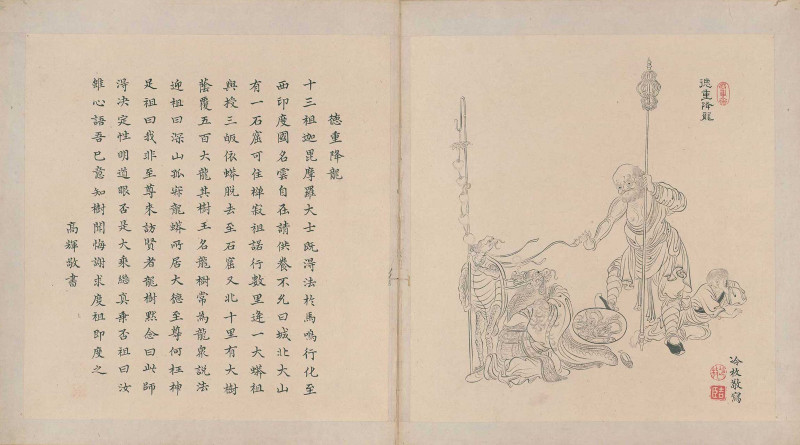 德重降龍
冷枚敬寫
德重降龍
十三祖迦毘摩羅大士既淂法於馬鳴行化至
西印度國名雲自在請供養不允曰城北大山
有一石窟可住禪寂祖諾行數里逢一大蟒祖
與授三皈依蟒脫去至石窟又北十里有大樹
蔭覆五百大龍其樹王名龍樹常為龍衆說法
迎祖曰深山孤寂龍蟒所居大德至尊何枉神
足祖曰我非至尊來訪賢者龍樹默念曰此師
淂決定性明道眼否是大乘繼真乗否祖曰汝
雖心語吾已意知樹聞悔謝求度祖即度之
高輝敬書